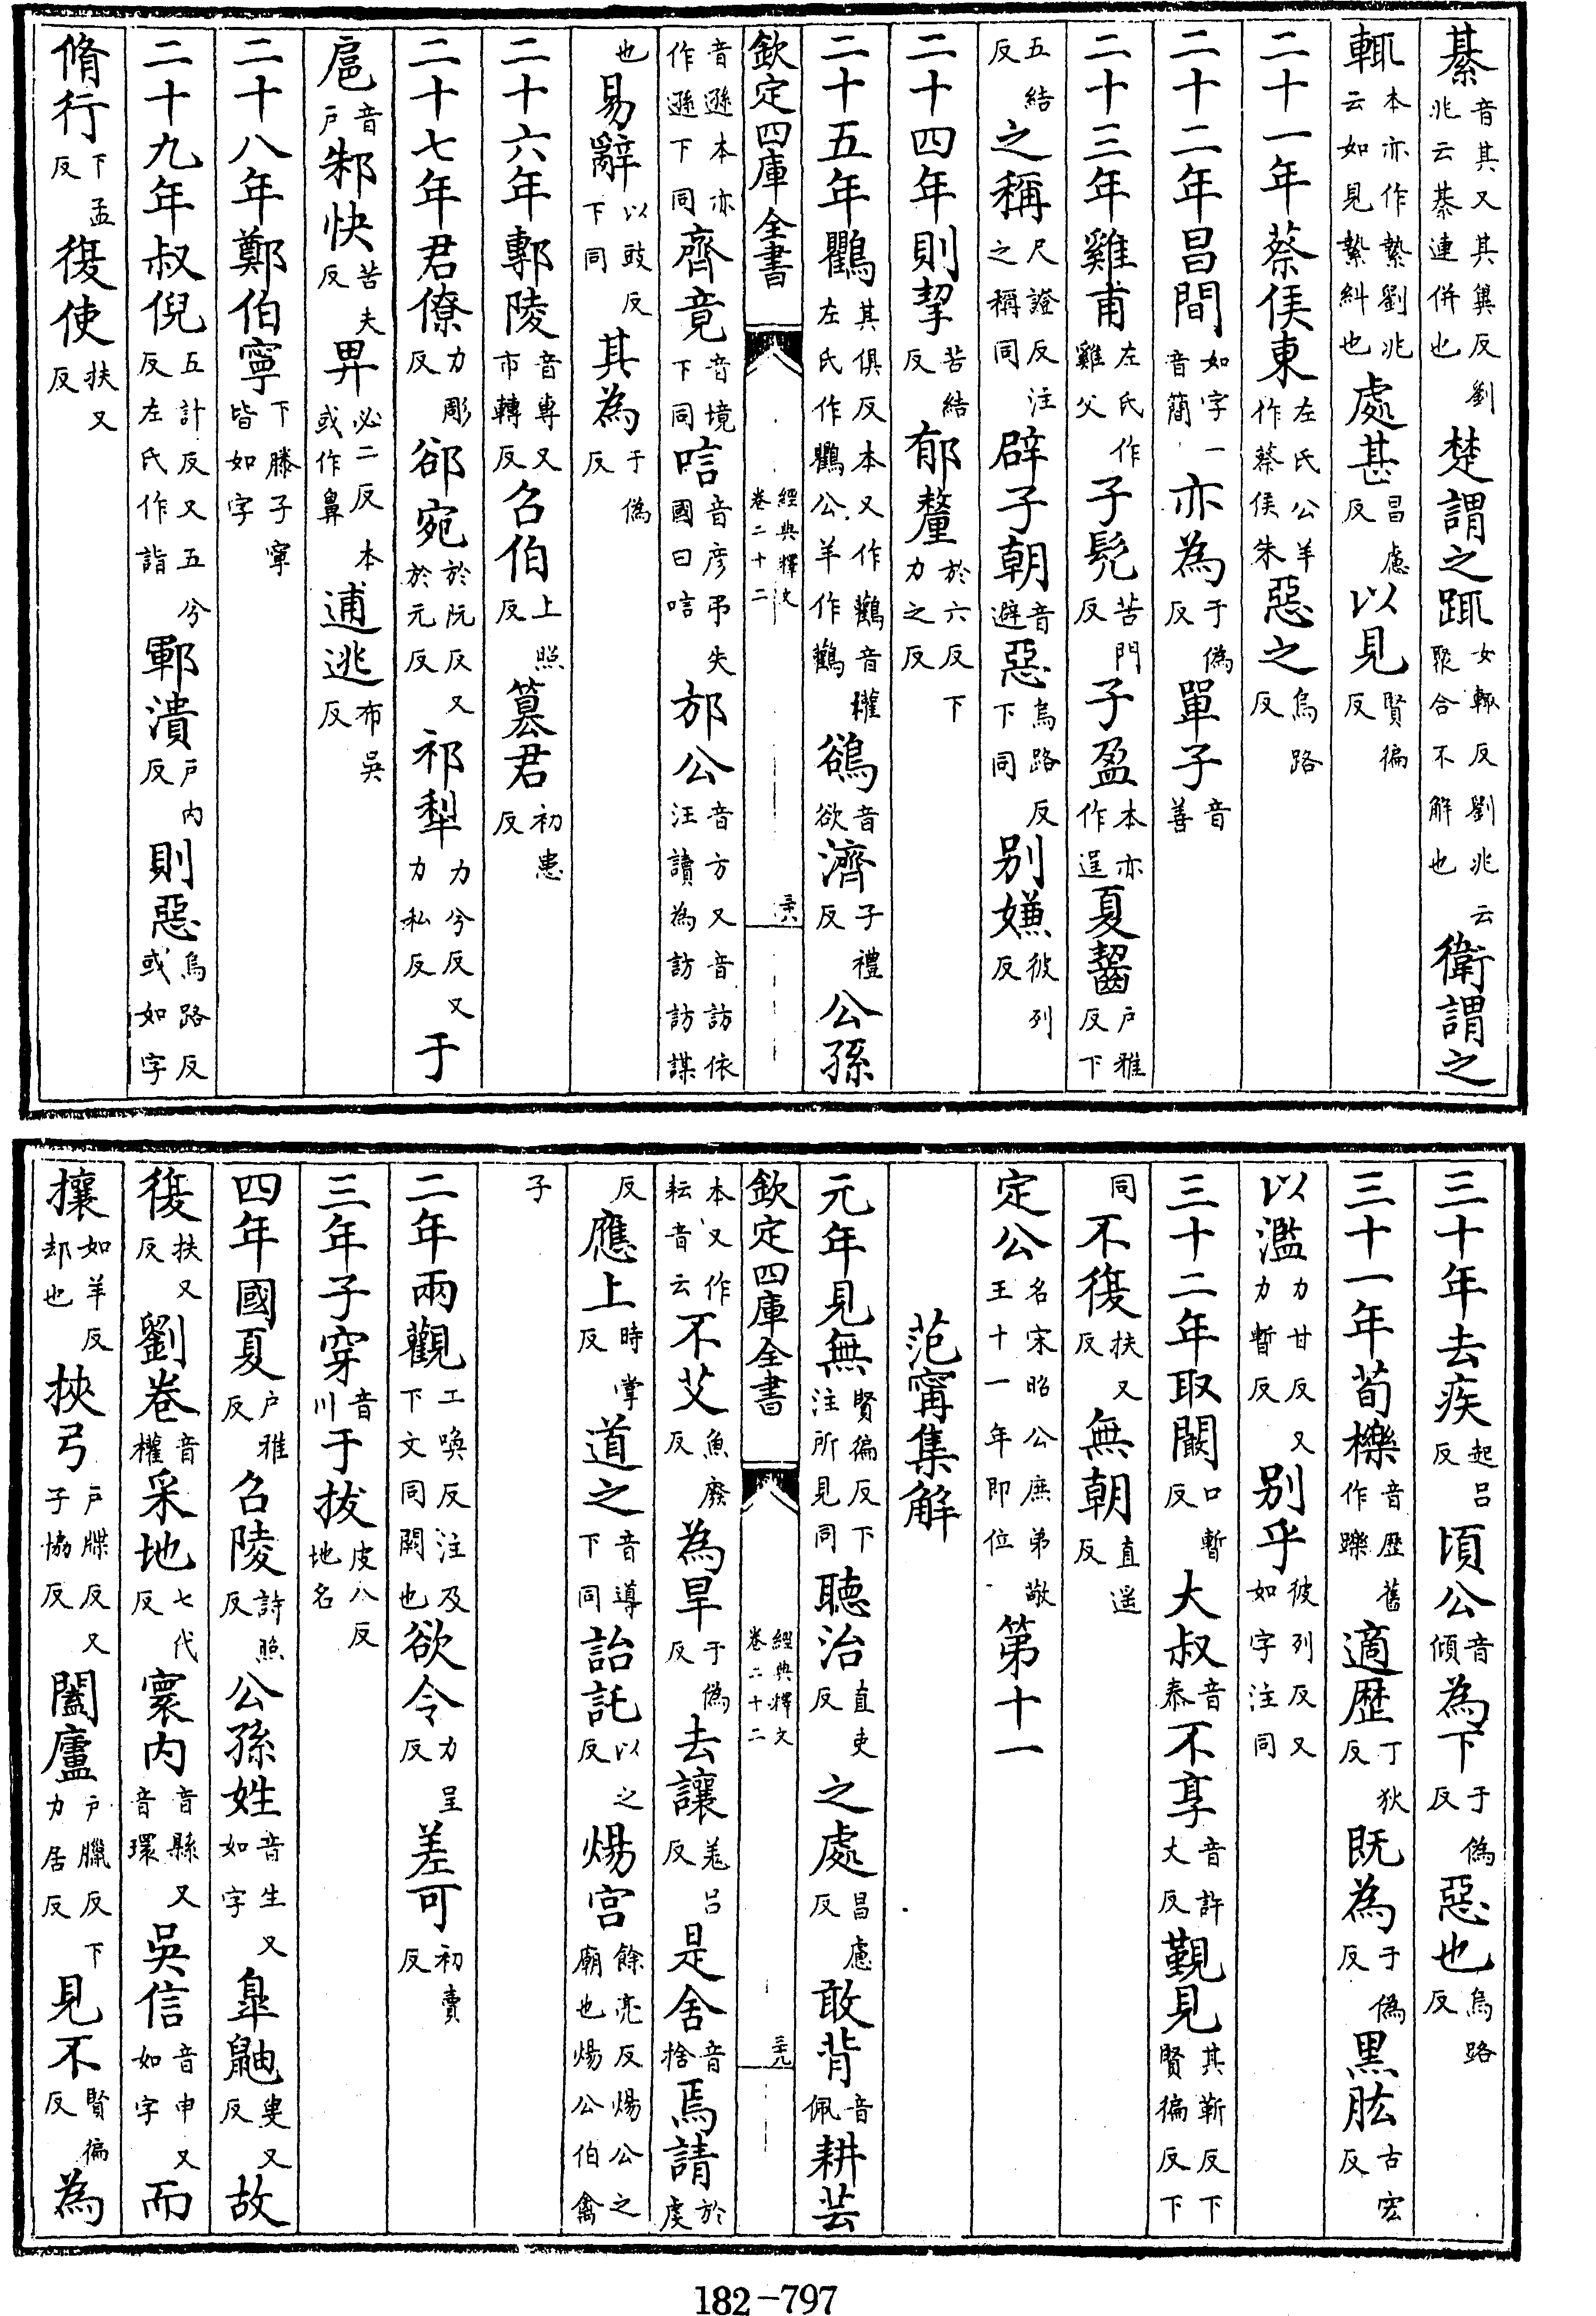 綦音其又其兾反劉兆云綦連併也楚謂之踂女輒反劉兆云聚合不解也衛謂之
輒本亦作縶劉兆云如見縶糾也處甚昌慮反以見賢徧反
二十一年蔡侯東左氏公羊作蔡侯朱惡之烏路反
二十二年昌間如字一音簡亦為于偽反單子音善
二十三年雞甫左氏作雞父子髡苦門反子盈本亦作逞夏齧戶雅反下
五結反之稱尺證反注之稱同辟子朝音避惡烏路反下同别嫌彼列反
二十四年則挈苦結反郁釐於六反下力之反
二十五年鸛其俱反本又作鸛音權左氏作鸜公羊作鸛鵒音欲濟子禮反公孫
欽定四庫全書 經典釋文卷二十二 三八
音遜本亦作遜下同齊竟音境下同唁音彥弔失國曰唁邡公音方又音訪依汪讀為訪訪謀
也易辭以豉反下同其為于偽反
二十六年鄟陵音專又市轉反召伯上照反簒君初患反
二十七年君僚力彫反郤宛於阮反又於元反祁犁力兮反又力私反于
扈音戶邾快苦夬反畀必二反本或作鼻逋逃布吳反
二十八年鄭伯寧下滕子寧皆如字
二十九年叔倪五計反又五兮反左氏作詣鄆潰戶内反則惡烏路反或如字
脩行下孟反復使扶又反
三十年去疾起呂反頃公音傾為下于偽反惡也烏路反
三十一年荀櫟音歷舊作躒適歴丁狄反既為于偽反黒肱古宏反
以濫力甘反又力暫反别乎彼列反又如字注同
三十二年取闞口暫反大叔音泰不享音許丈反覲見其靳反下賢徧反下
同不復扶又反無朝直遥反
定公名宋昭公庶弟敬王十一年即位第十一
范甯集解
元年見無賢徧反下注所見同聽治直吏反之處昌慮反敢背音佩耕芸
欽定四庫全書 經典釋文卷二十二 三九
本又作耘音云不艾魚廢反為旱于偽反去讓羌呂反是舍音捨焉請於虔
反應上時掌反道之音導下同詒託以之反煬宫餘亮反煬公之廟也煬公伯禽
子
二年兩觀工喚反注及下文同闕也欲令力呈反差可初賣反
三年子穿音川于拔皮八反地名
四年國夏戶雅反召陵詩照反公孫姓音生又如字皐鼬叟又反故
復扶又反劉卷音權采地七代反寰内音縣又音環吳信音申又如字而
攘如羊反却也挾弓戶牒反又子協反闔廬戶臘反下力居反見不賢徧反為
182-797